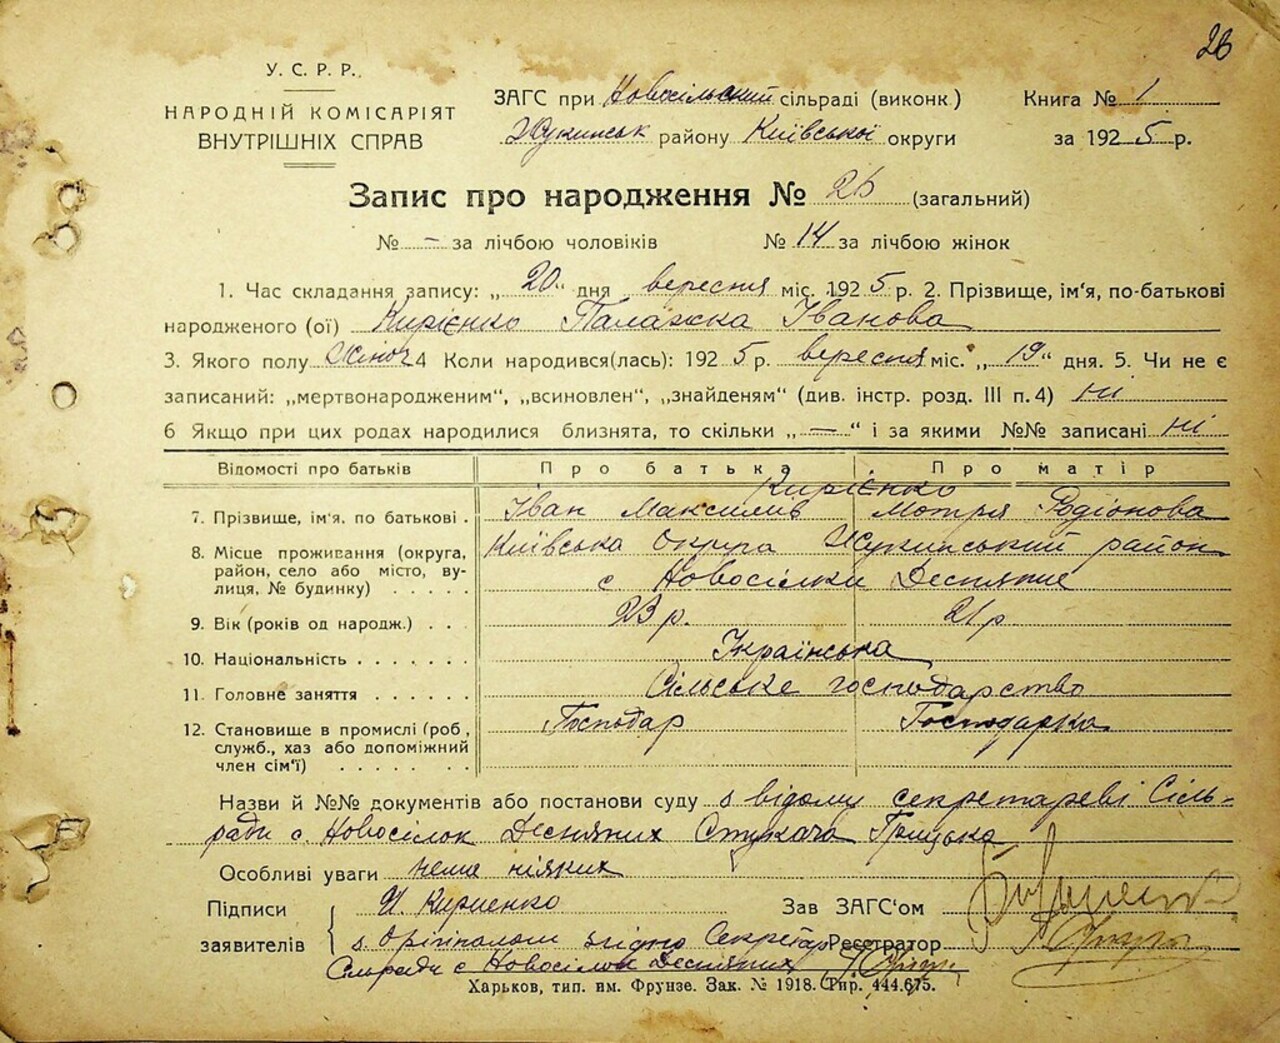 26
У. С. Р. Р.
НАРОДНІЙ КОМІСАРІЯТ
ВНУТРІШНІХ СПРАВ
ЗАГС при Новосільский сільраді (виконк.)
Жукинськ району Київської округи
Книга № 1
за 1925 р.
Запис про народження № 26 (загальний)
№ – за лічбою чоловіків № 14 за лічбою жінок
1. Час складання запису: „20“ дня вересня міс. 1925 р. 2. Прізвище, ім'я, по-батькові
народженого (ої) Кирієнко Палажка Іванова
3. Якого полу жіноч 4 Коли народився(лась): 1925 р. вересня міс. „19“ дня. 5. Чи не є
записаний: „мертвонародженим“, „всиновлен“, „знайденям“ (див. інстр. розд. III п. 4) ні
6 Якщо при цих родах народилися близнята, то скільки „—“ і за якими №№ записані ні
Відомості про батьків Про батька Про матір
Кирієнко
7. Прізвище, ім'я, по батькові . Іван Максимів Мотря Родіонова
8. Місце проживання (округа, Київська округа Жукинський район
район, село або місто, ву- с Новосілки Деспятие
лиця, № будинку) . . . . .
9. Вік (років од народж.) . . . 23 р. 21 р
10. Національність . . . . . . . Українська
11. Головне заняття . . . . . . Сільське господарство
12. Становище в промислі (роб., Господар Господарка
служб., хаз або допоміжний
член сім'ї) . . . . . .
Назви й №№ документів або постанови суду з відому секретареві Сіль-
ради с. Новосілок Деспятих Стукача Грицька
Особливі уваги нема ніяких
Підписи И. Кириенко Зав ЗАГС'ом
заявителів з орігіналом згідно Секретар Реєстратор
Сільради с Новосілок Деспятих
Харьков, тип. им. Фрунзе. Зак. № 1918. Тир. 444.675.